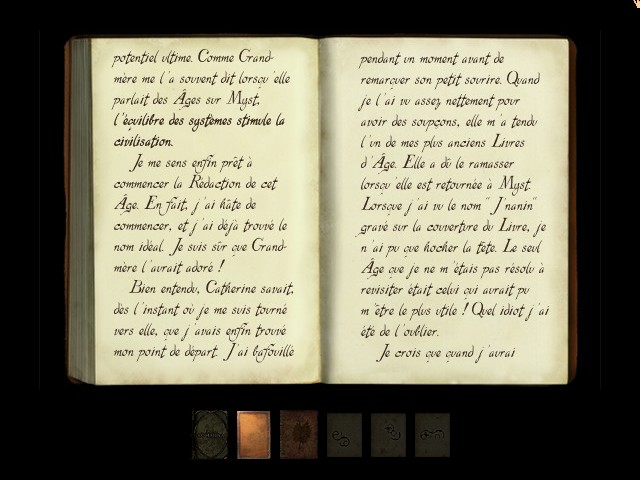 potentiel ultime. Comme Grand-
mère me l'a souvent dit lorsqu'elle
parlait des Âges sur Myst,
l'équilibre des systèmes stimule la
civilisation.
Je me sens enfin prêt à
commencer la Rédaction de cet
Âge. En fait, j'ai hâte de
commencer, et j'ai déjà trouvé le
nom idéal. Je suis sûr que Grand-
mère l'aurait adoré !
Bien entendu, Catherine savait,
dès l'instant où je me suis tourné
vers elle, que j'avais enfin trouvé
mon point de départ. J'ai bafouillé
pendant un moment avant de
remarquer son petit sourire. Quand
je l'ai vu assez nettement pour
avoir des soupçons, elle m'a tendu
l'un de mes plus anciens Livres
d'Âge. Elle a dû le ramasser
lorsqu'elle est retournée à Myst.
Lorsque j'ai vu le nom "J'nanin"
gravé sur la couverture du Livre, je
n'ai pu que hocher la tête. Le seul
Âge que je ne m'étais pas résolu à
revisiter était celui qui aurait pu
m'être le plus utile ! Quel idiot j'ai
été de l'oublier.
Je crois que quand j'aurai